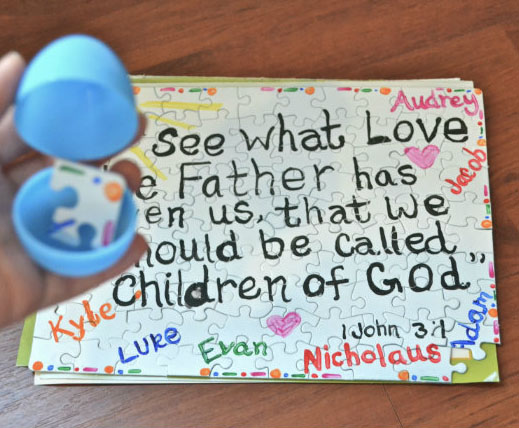 Audrey
See what Love
e Father has
Jacob
en us, that we
hould be called
Children of God"
Kyle
Luke
Evan
1 John 3:1
Nicholaus
Adam